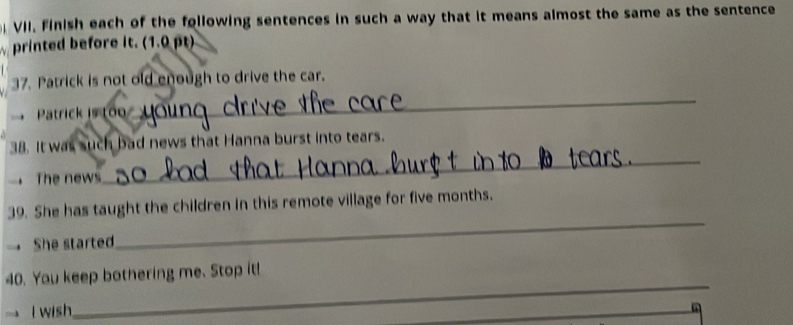 VII. Finish each of the following sentences in such a way that it means almost the same as the sentence
printed before it. (1.0 pt)
37. Patrick is not old enough to drive the car.
→ Patrick is too young drive the care
38. It was such bad news that Hanna burst into tears.
→ The news so bad that Hanna burst into tears.
39. She has taught the children in this remote village for five months.
→ She started
40. You keep bothering me. Stop it!
→ I wish